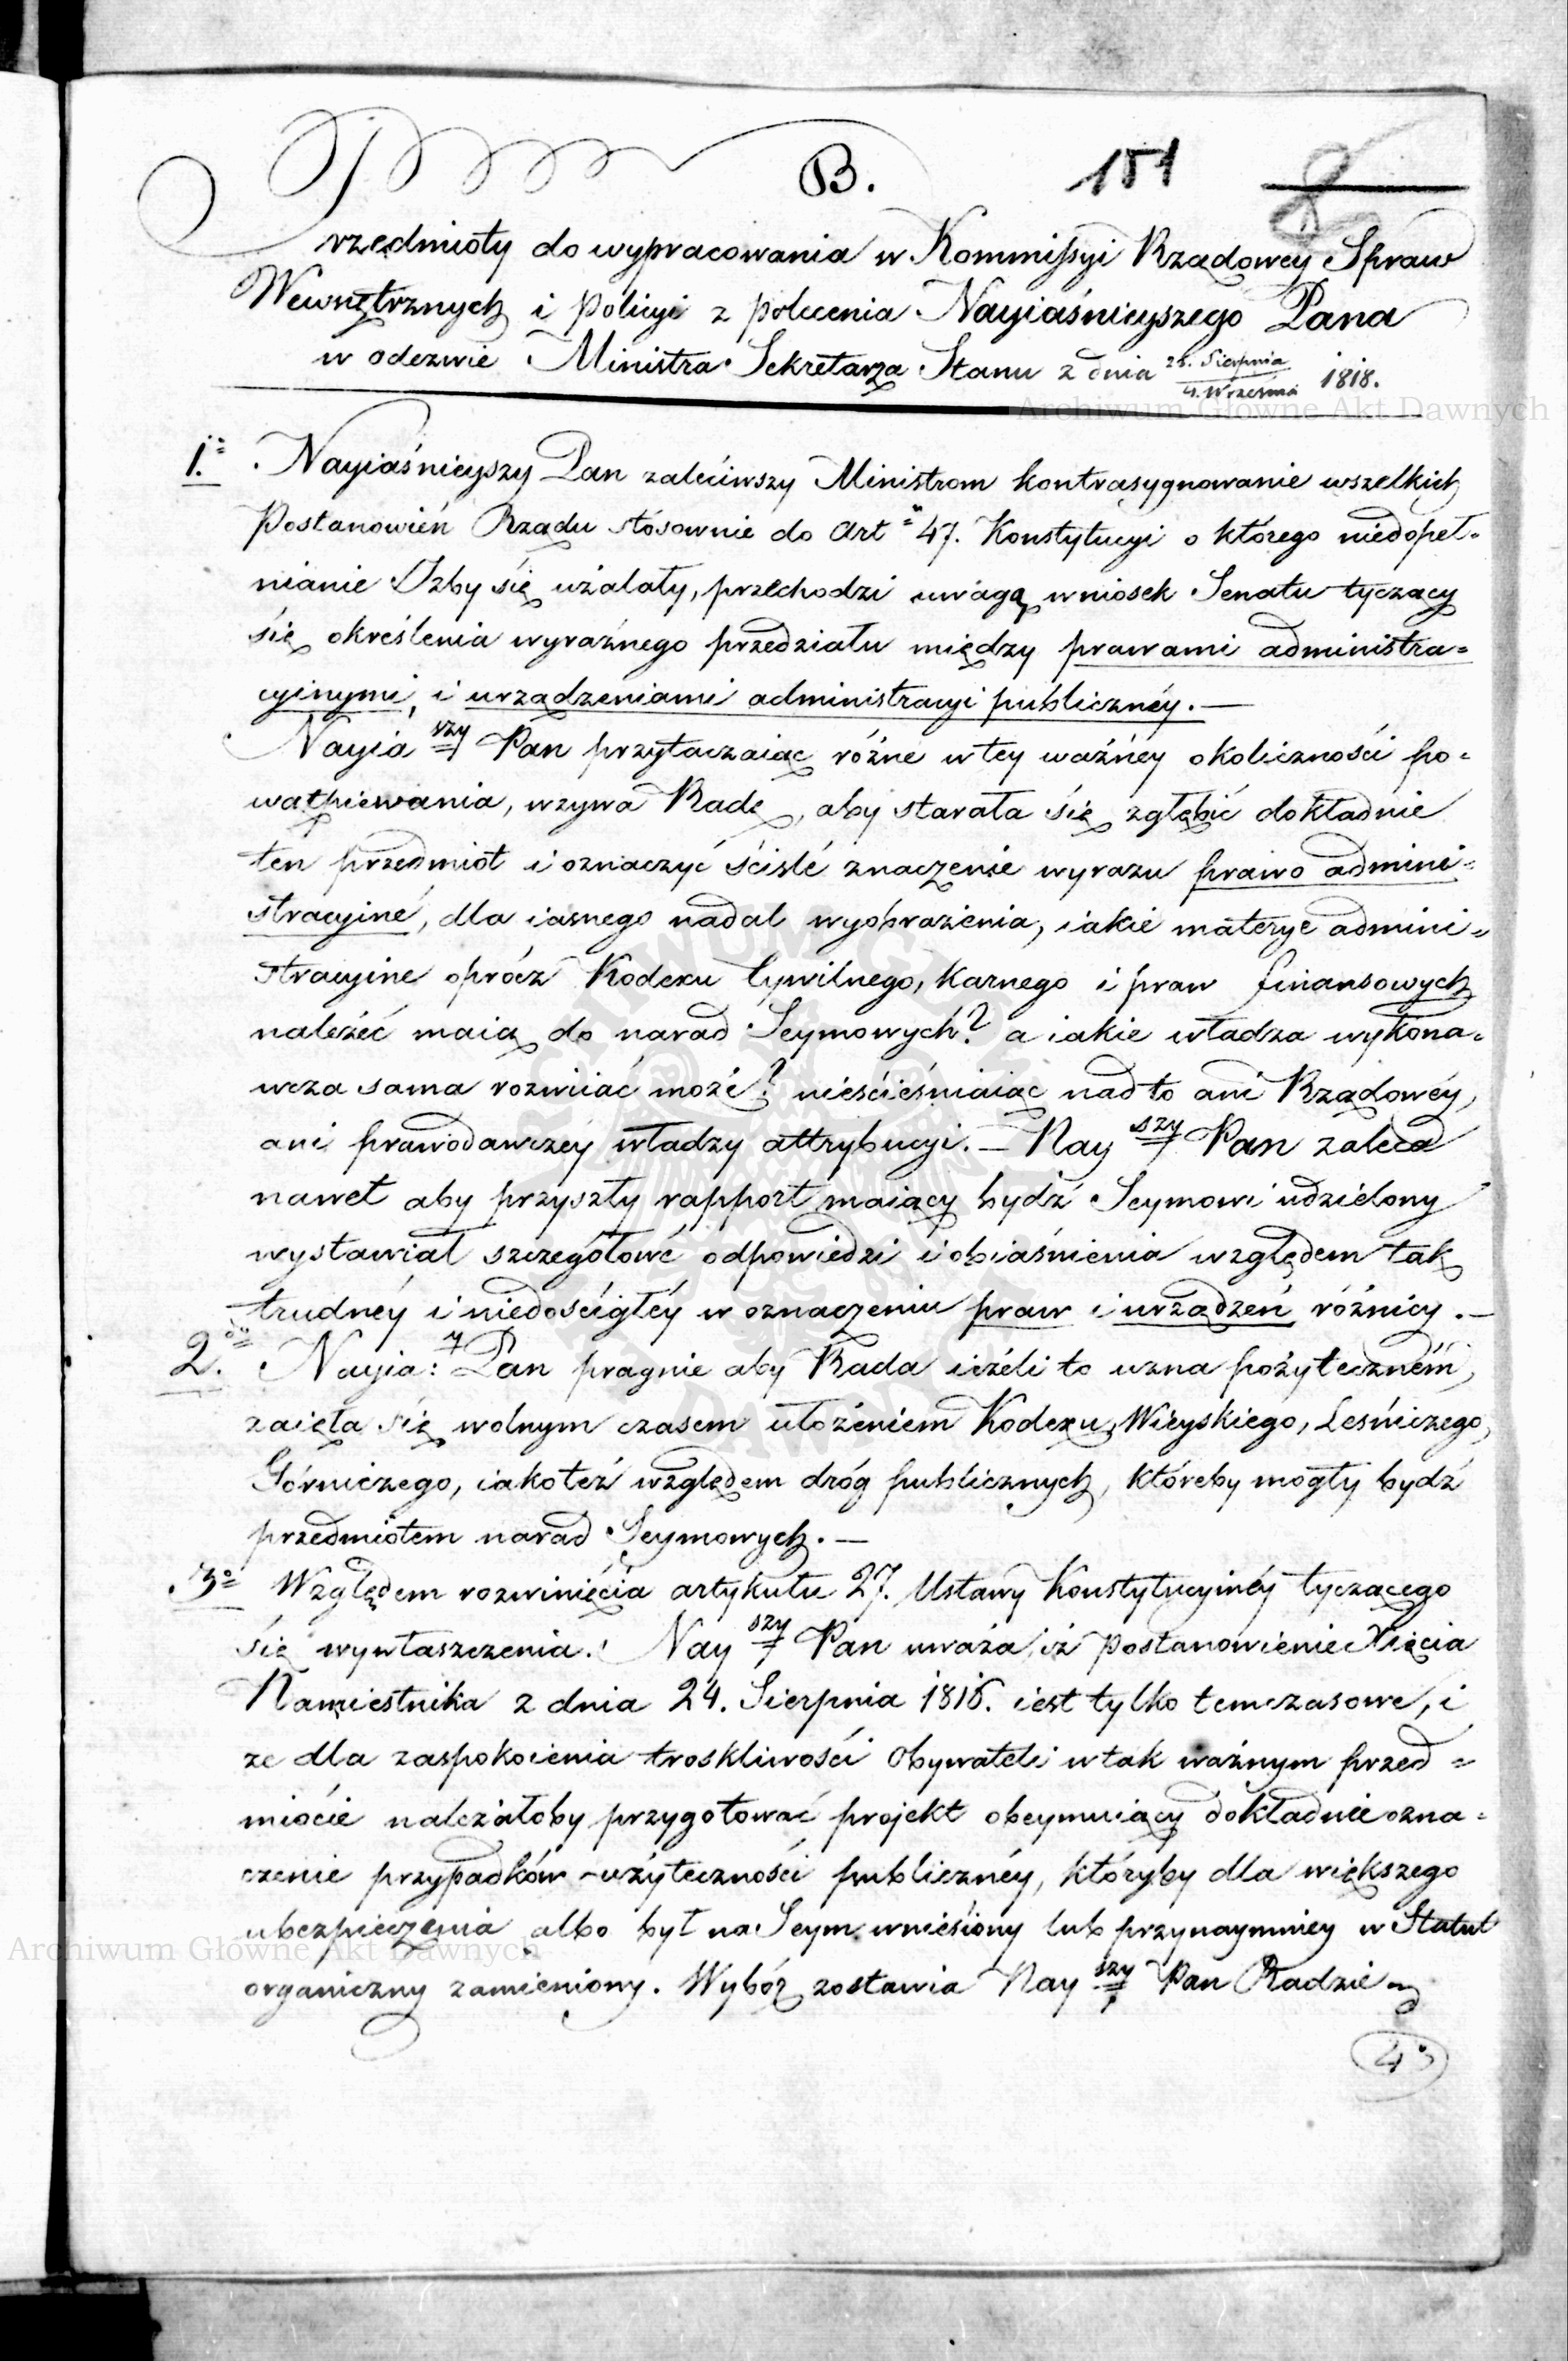 B.
151
8
Przedmioty do wypracowania w Kommissyi Rządowey Spraw
Wewnętrznych i Policyi z polecenia Nayiaśnieyszego Pana
w odezwie Ministra Sekretarza Stanu z dnia Sierpnia / 4. Września 1818.
1.º Nayiaśnieyszy Pan zaleciwszy Ministrom kontrasygnowanie wszelkich
Postanowień Rządu stósownie do Artº 47. Konstytucyi o którego niedopeł-
nianie Izby się użalały, przechodzi uwagą wniosek Senatu tyczący
się określenia wyraźnego przedziału między prawami administra=
cyinymi, i urządzeniami administracyi publicznéy. —
Nayia szy Pan przytaczaiąc różne w tey ważney okoliczności po-
wątpiewania, wzywa Radę, aby starała się zgłębić dokładnie
ten przedmiot i oznaczyć ścisłe znaczenie wyrazu prawo admini-
stracyiné, dla iasnego nadal wyobrażenia, iakie materye admini=
stracyine oprócz Kodexu Cywilnego, Karnego i praw finansowych
należéć maią do narad Seymowych? a iakie władza wykona-
wcza sama rozwiiać może? nieścieśniaiąc nadto ani Rządowéy,
ani prawodawczéy władzy attrybucyi. — Nay szy Pan zaleca
nawet aby przyszły rapport maiący bydź Seymowi udzielony
wystawiał szczegółowé odpowiedzi i obiaśnienia względem tak
trudnéy i niedościgłéy w oznaczeniu praw i urządzeń różnicy. —
2.do Nayia: y Pan pragnie aby Rada ieżéli to uzna pożyteczném,
zaięła się wolnym czasem ułożéniem Kodexu Wieyskiego, Leśniczego,
Górniczego, iakotéż względem dróg publicznych, któreby mogły bydź
przedmiotem narad Seymowych. —
3º Względem rozwinięcia artykułu 27. Ustawy Konstytucyinéy tyczącego
się wywłaszczenia. Nay szy Pan uważa, iż postanowienie Xięcia
Namiestnika z dnia 24. Sierpnia 1816. iest tylko temczasowe, i
ze dla zaspokoienia troskliwości Obywateli w tak ważnym przed=
miocie należałoby przygotować projekt obeymuiący dokładnie ozna-
czenie przypadków użyteczności publicznéy, któryby dla większego
ubezpieczenia albo był na Seym wniesiony lub przynaymniey w Statut
organiczny zamieniony. Wybór zostawia Nay szy Pan Radzie
4º
Archiwum Główne Akt Dawnych
Archiwum Główne Akt Dawnych